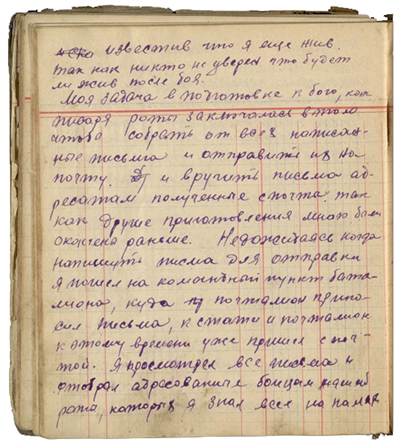 известив что я еще жив.
так как никто не уверен что будет
ли жив после боя.
Моя задача в подготовке к бою, как
писаря роты заключалась в том
чтобы собрать от всех написан-
ные письма и отправить их на
почту. и вручить письма ад-
ресатам полученные с почты. так
как другие приготовления мною были
окончены раньше. Недожидаясь когда
напишуть писма для отправки
я пошел на командный пункт бата
лиона, куда почталион прино-
сил письма, к стати и почталион
к этому времени уже пришел с поч-
той. Я просмотрел все письма и
отобрал адресованные бойцам нашей
роты, которых я знал всех на память